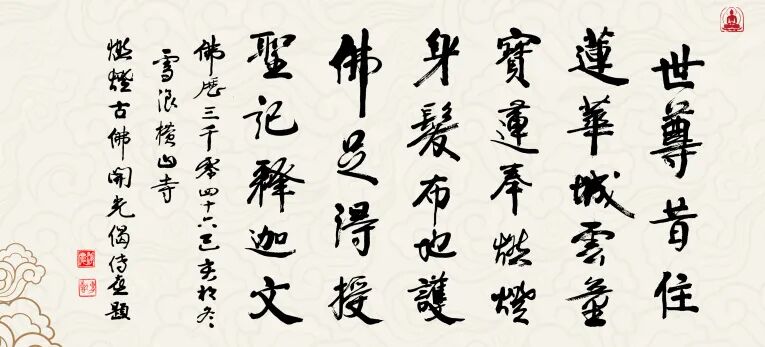 世尊昔住
蓮華城雲童
寶蓮奉燃燈
身髮布地護
佛足得授
聖記釋迦文
佛历三千零四十六己亥初冬
雪浪橫山寺
燃燈古佛開光偈传喜題